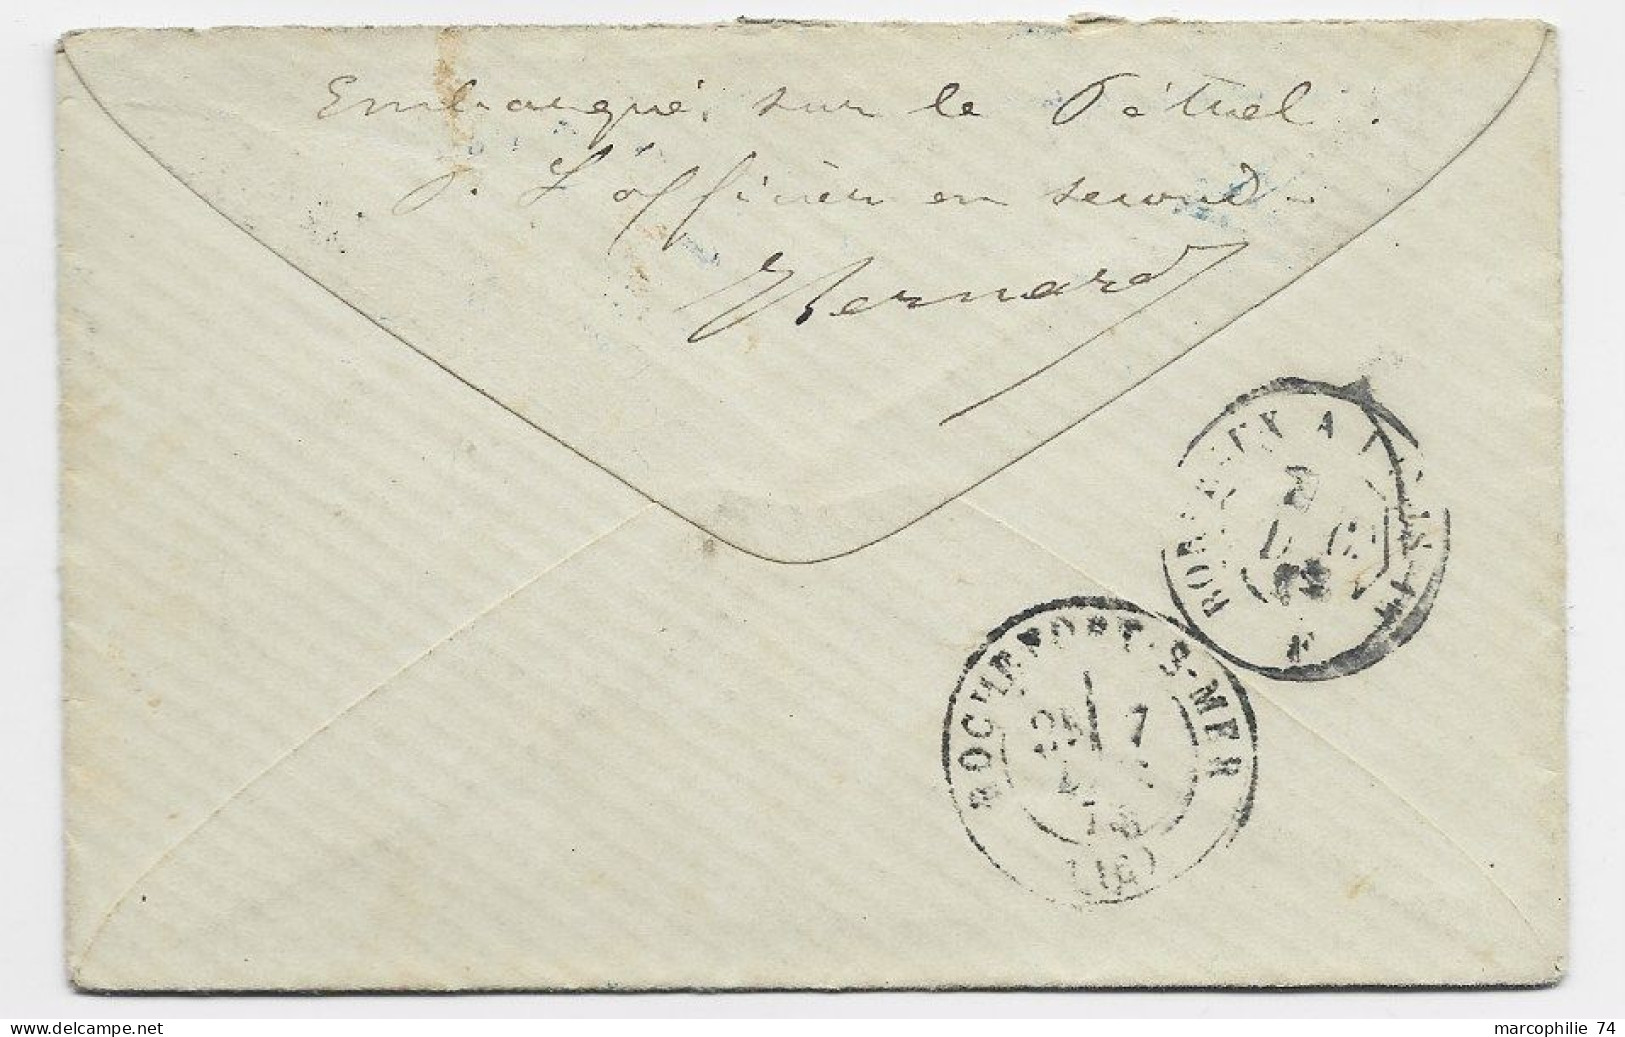 Embarqué sur le Pétrel.
P. L'officier en second
Bernard
BORDEAUX A PARIS
2
ROCHEFORT-S-MER
7
78
(16)
delcampe.net
marcophilie 74